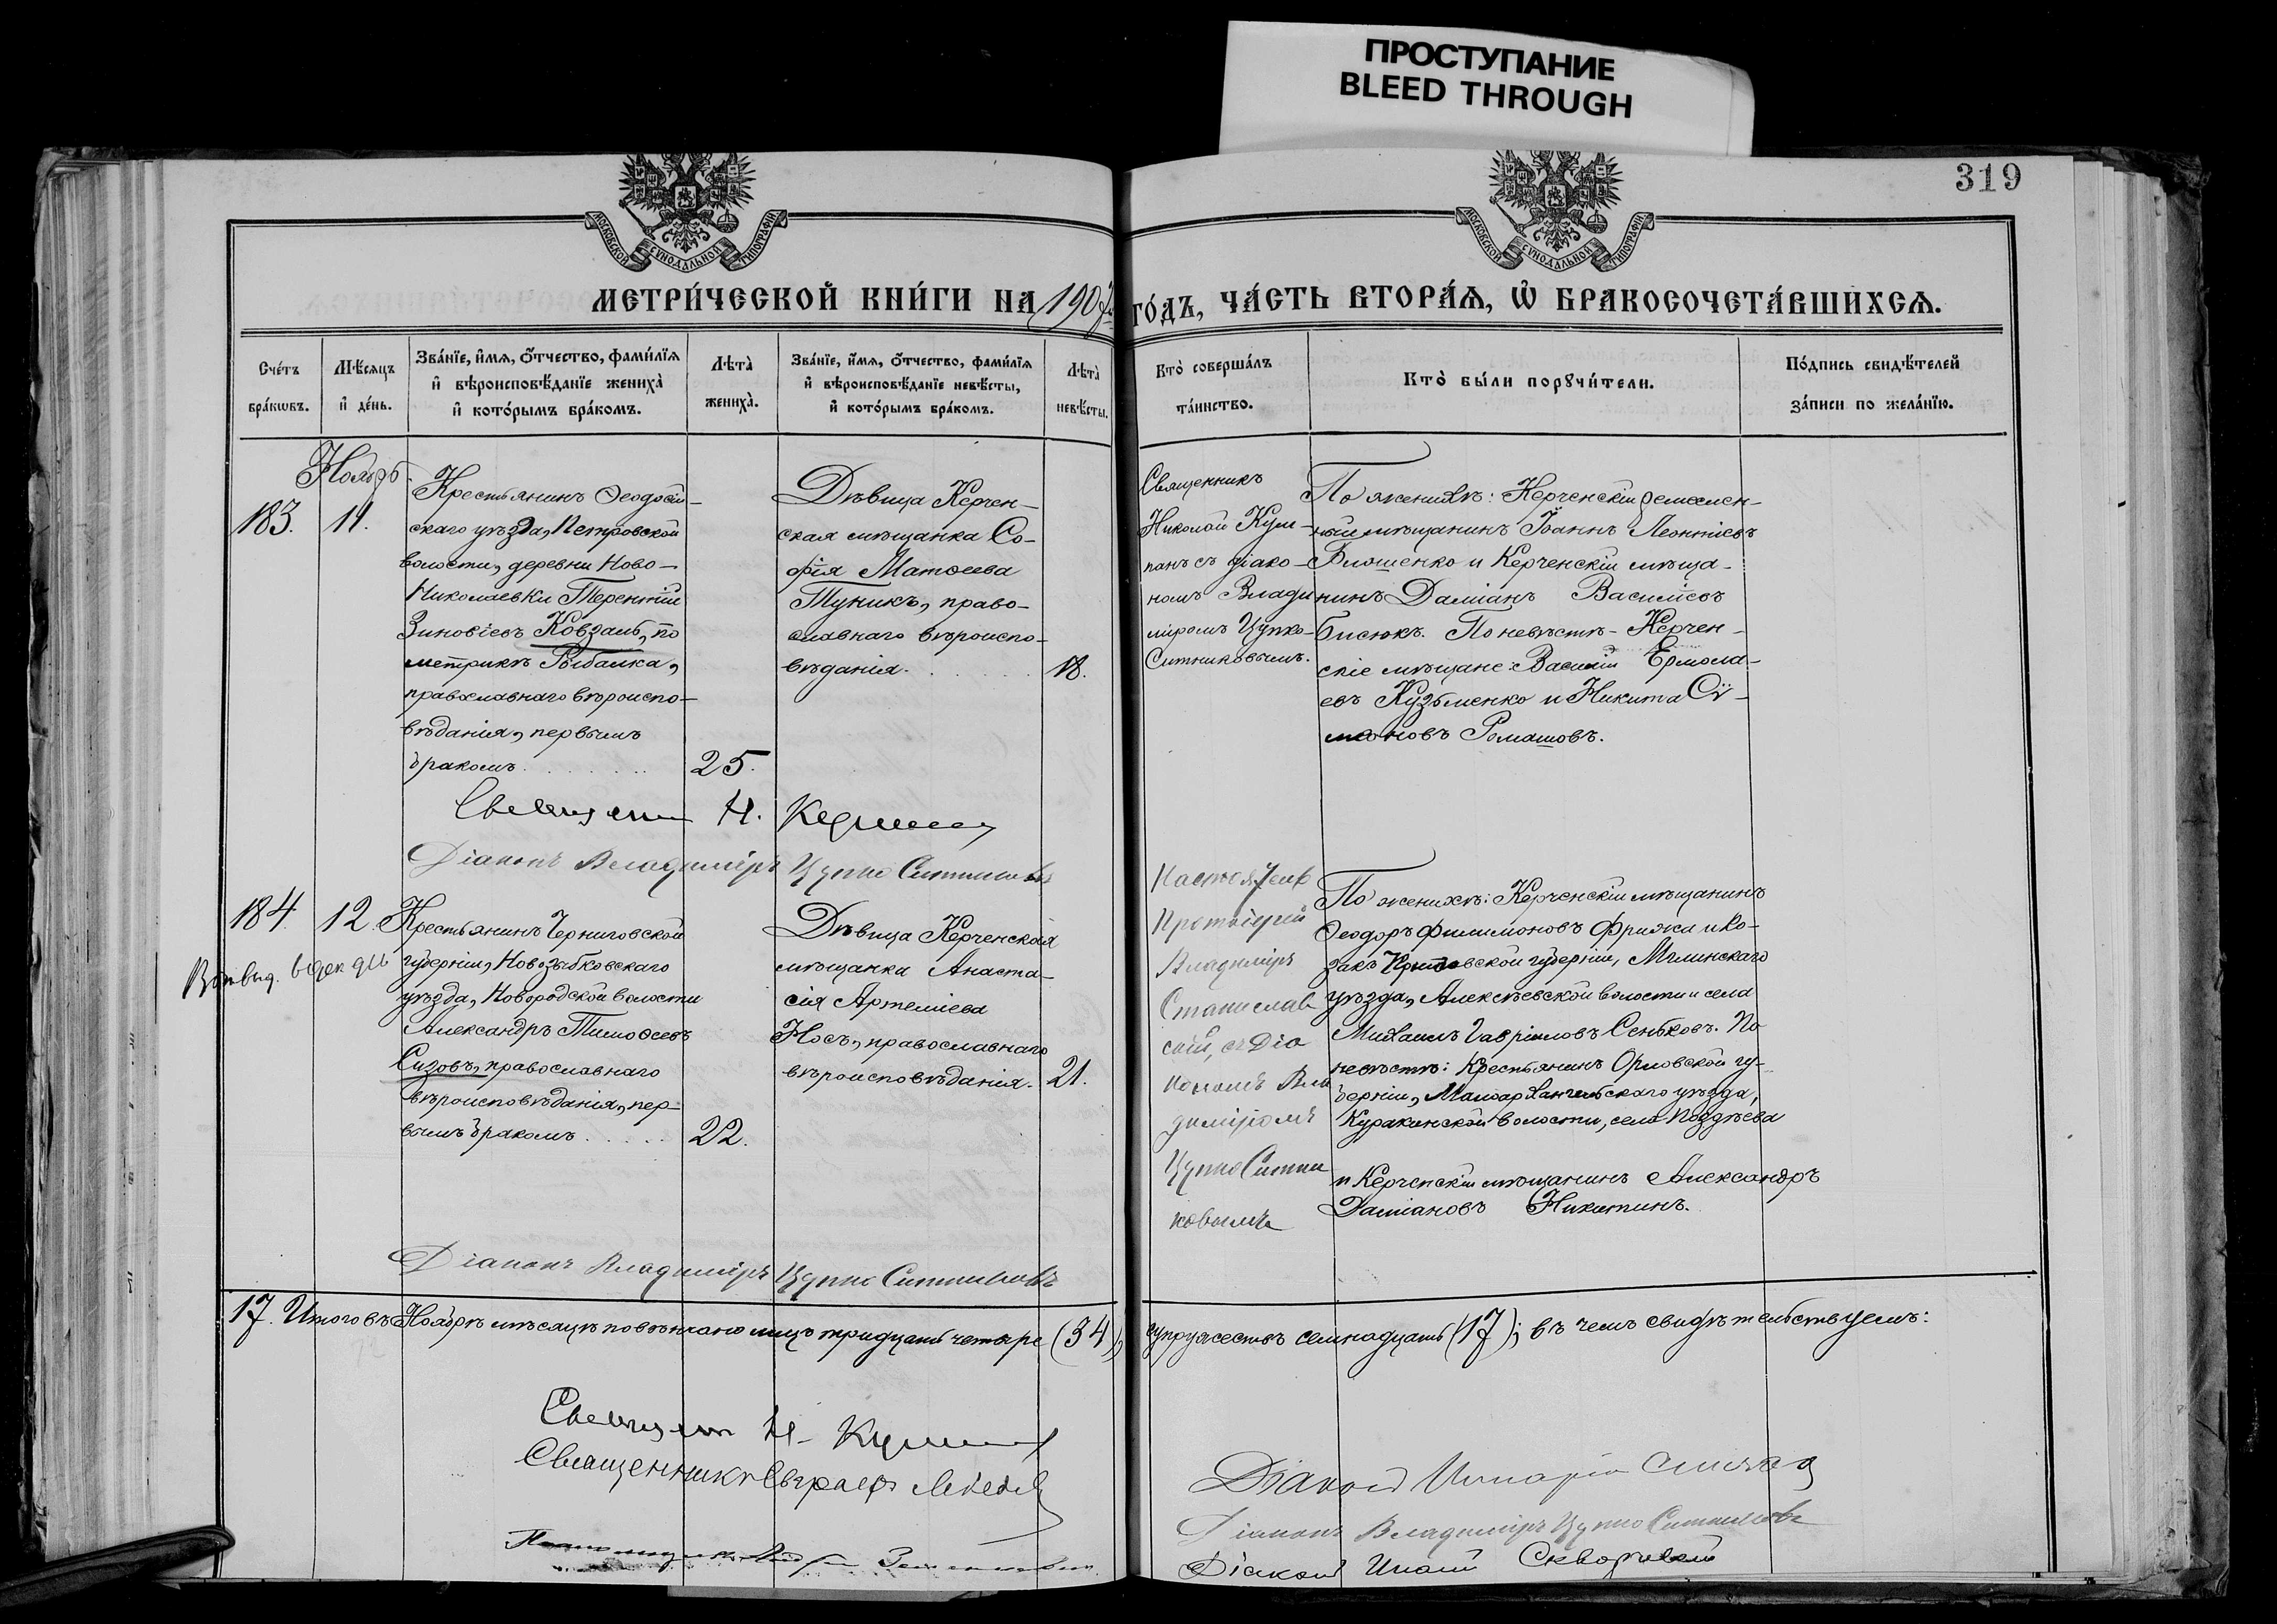 ПРОСТУПАНИЕ
BLEED THROUGH
319
МОСКОВСКОЙ СУНОДАЛЬНОЙ ТИПОГРАФІИ
МОСКОВСКОЙ СУНОДАЛЬНОЙ ТИПОГРАФІИ
МЕТРИ́ЧЕСКОЙ КНИ́ГИ НА 1907
ГО́ДЪ, ЧА́СТЬ ВТОРА́Ѧ, Ѽ БРАКОСОЧЕТА́ВШИХСѦ.
Сче́тъ
бра́кѡвъ.
Мѣ́сяцъ
и҆ де́нь.
Зва́нїе, и҆́мѧ, ѻ҆́тчество, фами́лїѧ
и҆ вѣроисповѣ́данїе жениха̀
и҆ кото́рымъ бра́комъ.
Лѣта̀
жениха̀.
Зва́нїе, и҆́мѧ, ѻ҆́тчество, фами́лїѧ
и҆ вѣроисповѣ́данїе невѣ́сты,
и҆ кото́рымъ бра́комъ.
Лѣта̀
невѣ́сты.
Кто̀ соверша́лъ
та́инство.
Кто̀ бы́ли порꙋчи́тели.
По́дпись свидѣ́телей
за́писи по жела́нїю.
Ноябрь
183.
11.
Крестьянинъ Ѳеодосій-
скаго уѣзда, Петровской
волости, деревни Ново-
Николаевки Терентій
Зиновіевъ Ковзалъ, по
метрикѣ Рыбалка,
православнаго вѣроиспо-
вѣданія, первымъ
бракомъ
25.
Дѣвица Керчен-
ская мѣщанка Со-
фія Матѳеева
Туникъ, право-
славнаго вѣроиспо-
вѣданія.
18.
Священникъ
Николай Куш-
панъ съ діако-
номъ Влади
міромъ Цупко-
Ситниковымъ.
По женихѣ: Керченскій ремеслен-
ный мѣщанинъ Іоаннъ Леонтіевъ
Блошенко и Керченскій мѣща-
нинъ Даміанъ Василіевъ
Бисюкъ. По невѣстѣ - Керчен-
скіе мѣщане: Василій Ермола-
евъ Кузьменко и Никита Сѵ-
меоновъ Ромашовъ.
Священник Н. Кушпан
Діаконъ Владиміръ Цупко Ситниковъ
184.
12.
Крестьянинъ Черниговской
губерніи, Новозыбковскаго
уѣзда, Новородской волости
Александръ Тимоѳеевъ
Сизовъ, православнаго
вѣроисповѣданія, пер-
вымъ бракомъ
22.
Дѣвица Керченская
мѣщанка Анаста-
сія Артеміева
Носъ, православнаго
вѣроисповѣданія.
21.
Настоятель
Протоіерей
Владиміръ
Станислав
скій, съ Діа
кономъ Вла
диміромъ
Цупко Ситни
ковымъ
По женихѣ: Керченскій мѣщанинъ
Ѳеодоръ Филимоновъ Фрижа и ко-
закъ губерніи, Мглинскаго
уѣзда, Алексѣевской волости и села
Михаилъ Гавріиловъ Сеньковъ. По
невѣстѣ: Крестьянинъ Орловской гу-
берніи, Малоархангельскаго уѣзда,
Куракинской волости, села Позднѣева
и Керченскій мѣщанинъ Александръ
Даміановъ Никитинъ.
Діаконъ Владиміръ Цупко Ситниковъ
17. Итого въ Ноябрѣ мѣсяцѣ повѣнчано лицъ тридцать четыре (34),
супружествъ семнадцать (17); въ чемъ свидѣтельствуемъ:
Священник Н. Кушпан
Священникъ
Діаконъ
Діаконъ Владиміръ Цупко Ситниковъ
Діаконъ